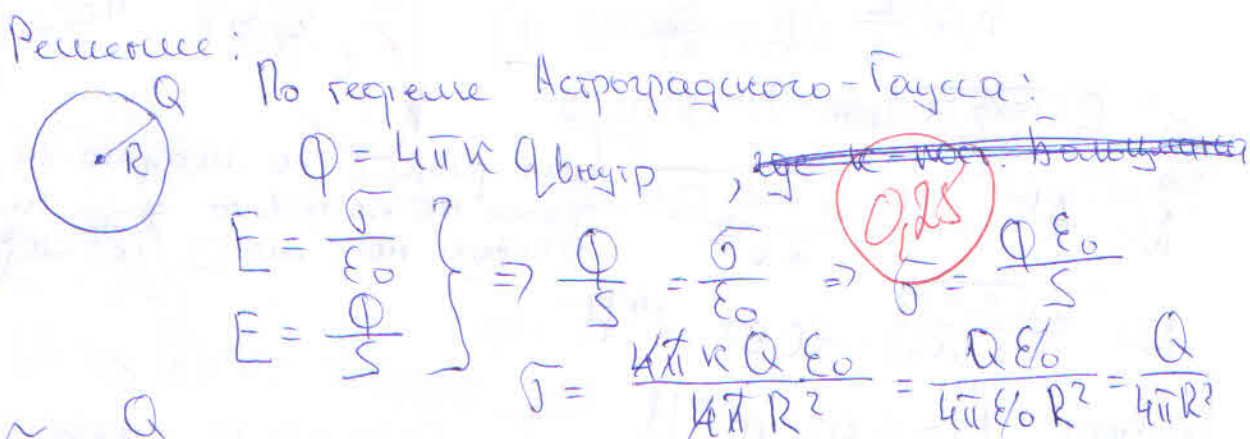 Решение:
Q
R
По теореме Астроградского-Гаусса:
Ф = 4πк qвнутр , где к - пост. Больцмана
0,25
E = σ/ε₀
E = Ф/S
} => Ф/S = σ/ε₀ => σ = Фε₀/S
σ = 4πкQε₀/4πR² = Qε₀/4πε₀R² = Q/4πR²
~ Q